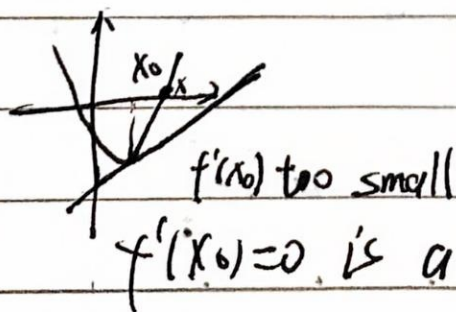 x₀
x
f'(x₀) too small
f'(x₀)=0 is a